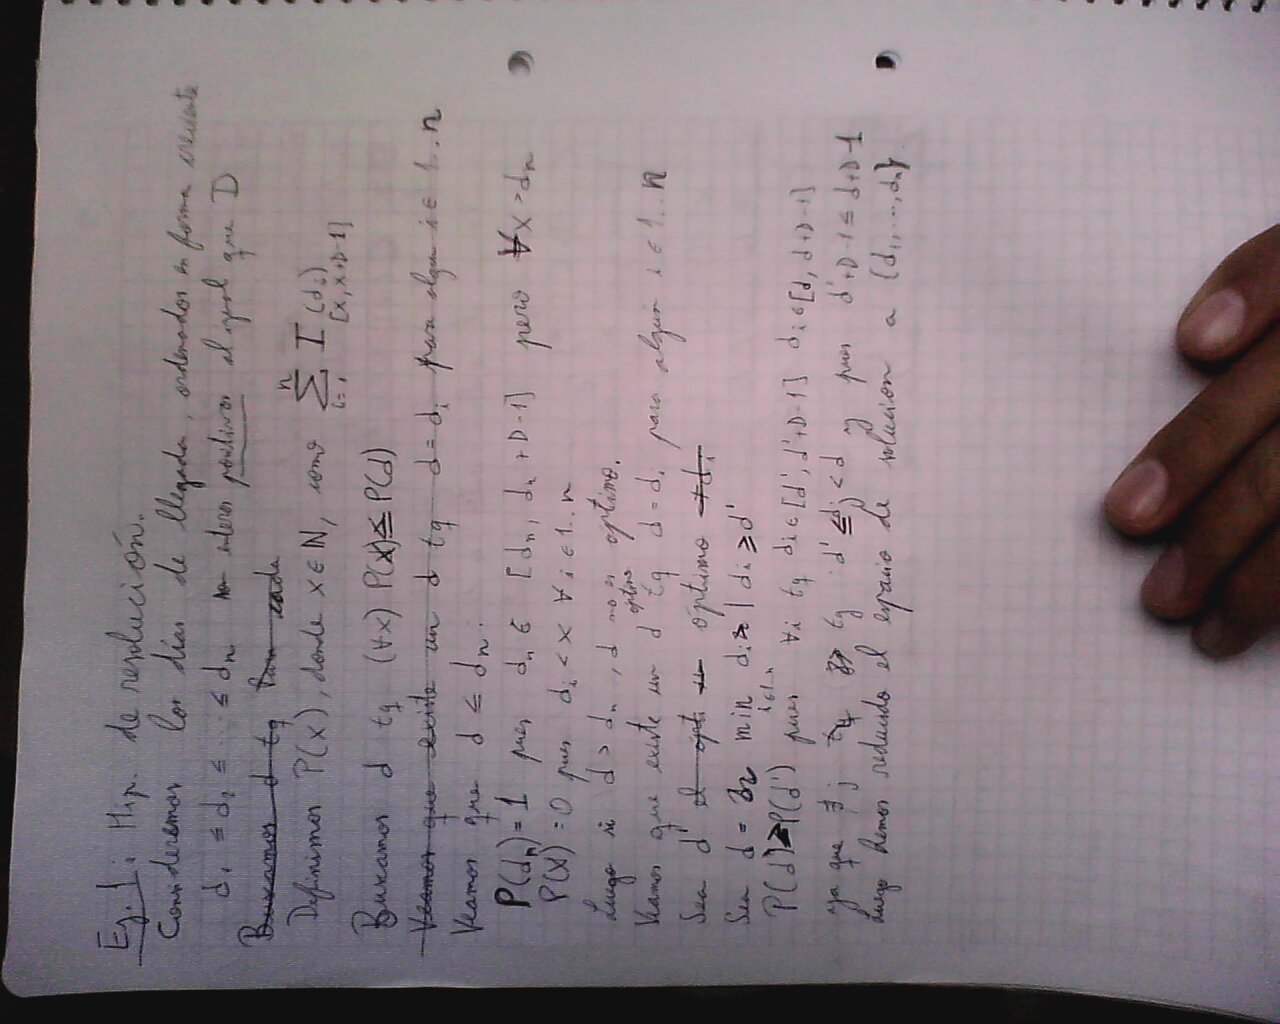 Ej. 1: Hip. de resolución.
Consideremos los días de llegada, ordenados en forma creciente
d₁ ≤ d₂ ≤ ... ≤ dₙ enteros positivos al igual que D
Buscamos d tq Para cada
Definimos P(x), donde x ∈ ℕ, como Σⁿᵢ₌₁ I (dᵢ) [x, x+D-1]
Buscamos d tq (∀x) P(x) ≤ P(d)
Veamos que existe un d tq d = dᵢ para algun i ∈ 1..n
Veamos que d ≤ dₙ.
P(dₙ) = 1 pues dₙ ∈ [dₙ, dₙ+D-1] pero ∀x > dₙ
P(x) = 0 pues dᵢ < x ∀i ∈ 1..n
Luego si d > dₙ, d no es óptimo.
Veamos que existe un d óptimo tq d = dᵢ para algún i ∈ 1..n
Sea d' óptimo
Sea d = min dᵢ | dᵢ ≥ d' i∈1..n
P(d) ≥ P(d') pues ∀i tq dᵢ ∈ [d', d'+D-1] dᵢ ∈ [d, d+D-1]
ya que ∄ j tq d' ≤ dⱼ < d y pues d'+D-1 ≤ d+D-1
Luego hemos reducido el espacio de solución a {d₁, ..., dₙ}.